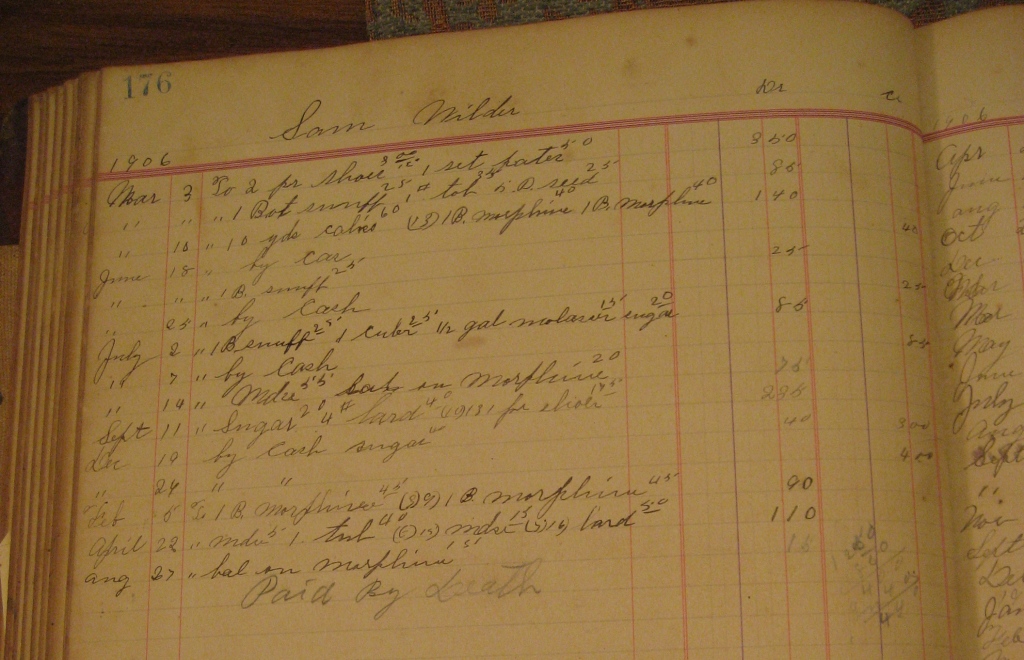 176
Sam Wilder Dr Cr
1906
Mar 3 To 2 pr shoes 3 00 1 set plates 50 3 50
" " " 1 Bot snuff 25 1 # tob 35 25 85
" 10 " 10 yds calico 60 (13) 1 B. morphine 40 1 B. morphine 40 1 40
June 18 " by car 40
" " " 1 B. snuff 25 25
" 23 " by Cash 25
July 2 " 1 B snuff 25 1 cube 25 1/2 gal molases 15 sugar 20 85
" 7 " by Cash 85
" 14 " Mdse 55 bal on morphine 20 75
Sept 11 " Sugar 20 4 # lard 40 1 pr shoes 175 2 35
Dec 19 by Cash sugar 40 3 00
" 24 " " 4 00
Feb 5 To 1 B. Morphine 45 1 B. morphine 45 90
April 22 " mdse 5 1 tub 40 mdse 15 lard 50 1 10
Aug 27 " bal on morphine 15 15
Paid By Death
Apr
June
Aug
Oct
Dec
Mar
Mar
May
June
July
Aug
Sept
"
Nov
Sept
Dec
Jan
Feb